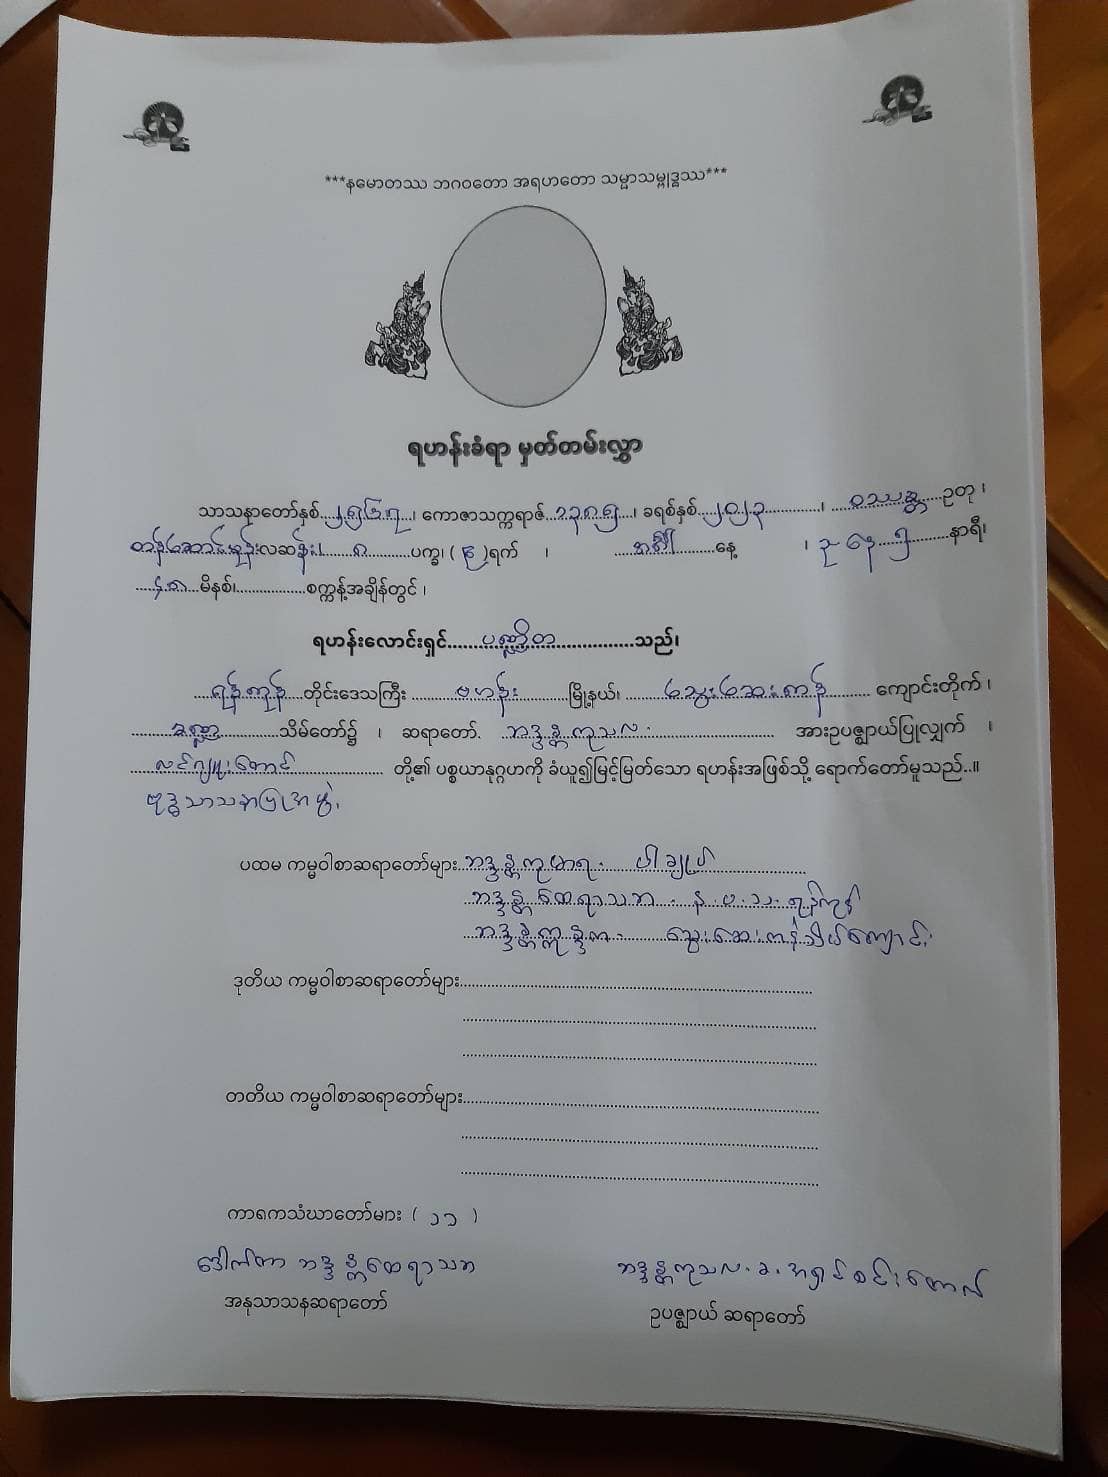 ***နမောတဿ ဘဂဝတော အရဟတော သမ္မာသမ္ဗုဒ္ဓဿ***
ရဟန်းခံရာ မှတ်တမ်းလွှာ
သာသနာတော်နှစ်....၂၅၆၇....၊ ကောဇာသက္ကရာဇ်...၁၃၈၅....၊ ခရစ်နှစ်...၂၀၂၃.............၊ ....ဝဿန္တ....ဥတု ၊
တန်ဆောင်မုန်းလဆန်း၊.............ပက္ခ၊ ( ၉ )ရက် ၊ ................နေ့ ၊ ............နာရီ၊
......၄၈....မိနစ်၊.................စက္ကန့်အချိန်တွင် ၊
ရဟန်းလောင်းရှင်........ပဏ္ဍိတ..................သည်၊
....ရန်ကုန်....တိုင်းဒေသကြီး ...........ဗဟန်း............မြို့နယ်၊ .........သွေးဆေးကန်.......... ကျောင်းတိုက် ၊
..........ခဏ္ဍ...............သိမ်တော်၌ ၊ ဆရာတော်. ....ဘဒ္ဒန္တကုသလ............................ အားဥပဇ္ဈာယ်ပြုလျှက် ၊
.....လင်ဂျူးတောင်...................... တို့၏ ပစ္စယာနုဂ္ဂဟကို ခံယူ၍မြင့်မြတ်သော ရဟန်းအဖြစ်သို့ ရောက်တော်မူသည်..။
ဗုဒ္ဓသာသနာပြုအဖွဲ့၊
ပထမ ကမ္မဝါစာဆရာတော်များ..ဘဒ္ဒန္တကုမာရ - ..... ပါချုပ်....................
..ဘဒ္ဒန္တထေရာသဘ - န . ဗ . သ . ရန်ကုန်
..ဘဒ္ဒန္တဣန္ဒက - သွေးဆေးကန်သိမ်ကျောင်း
ဒုတိယ ကမ္မဝါစာဆရာတော်များ..................................................
တတိယ ကမ္မဝါစာဆရာတော်များ..................................................
ကာရကသံဃာတော်များ ( ၁၁ )
ဒေါက်တာ ဘဒ္ဒန္တထေရာသဘ
ဘဒ္ဒန္တကုသလ
အနုသာသနဆရာတော်
ဥပဇ္ဈာယ် ဆရာတော်